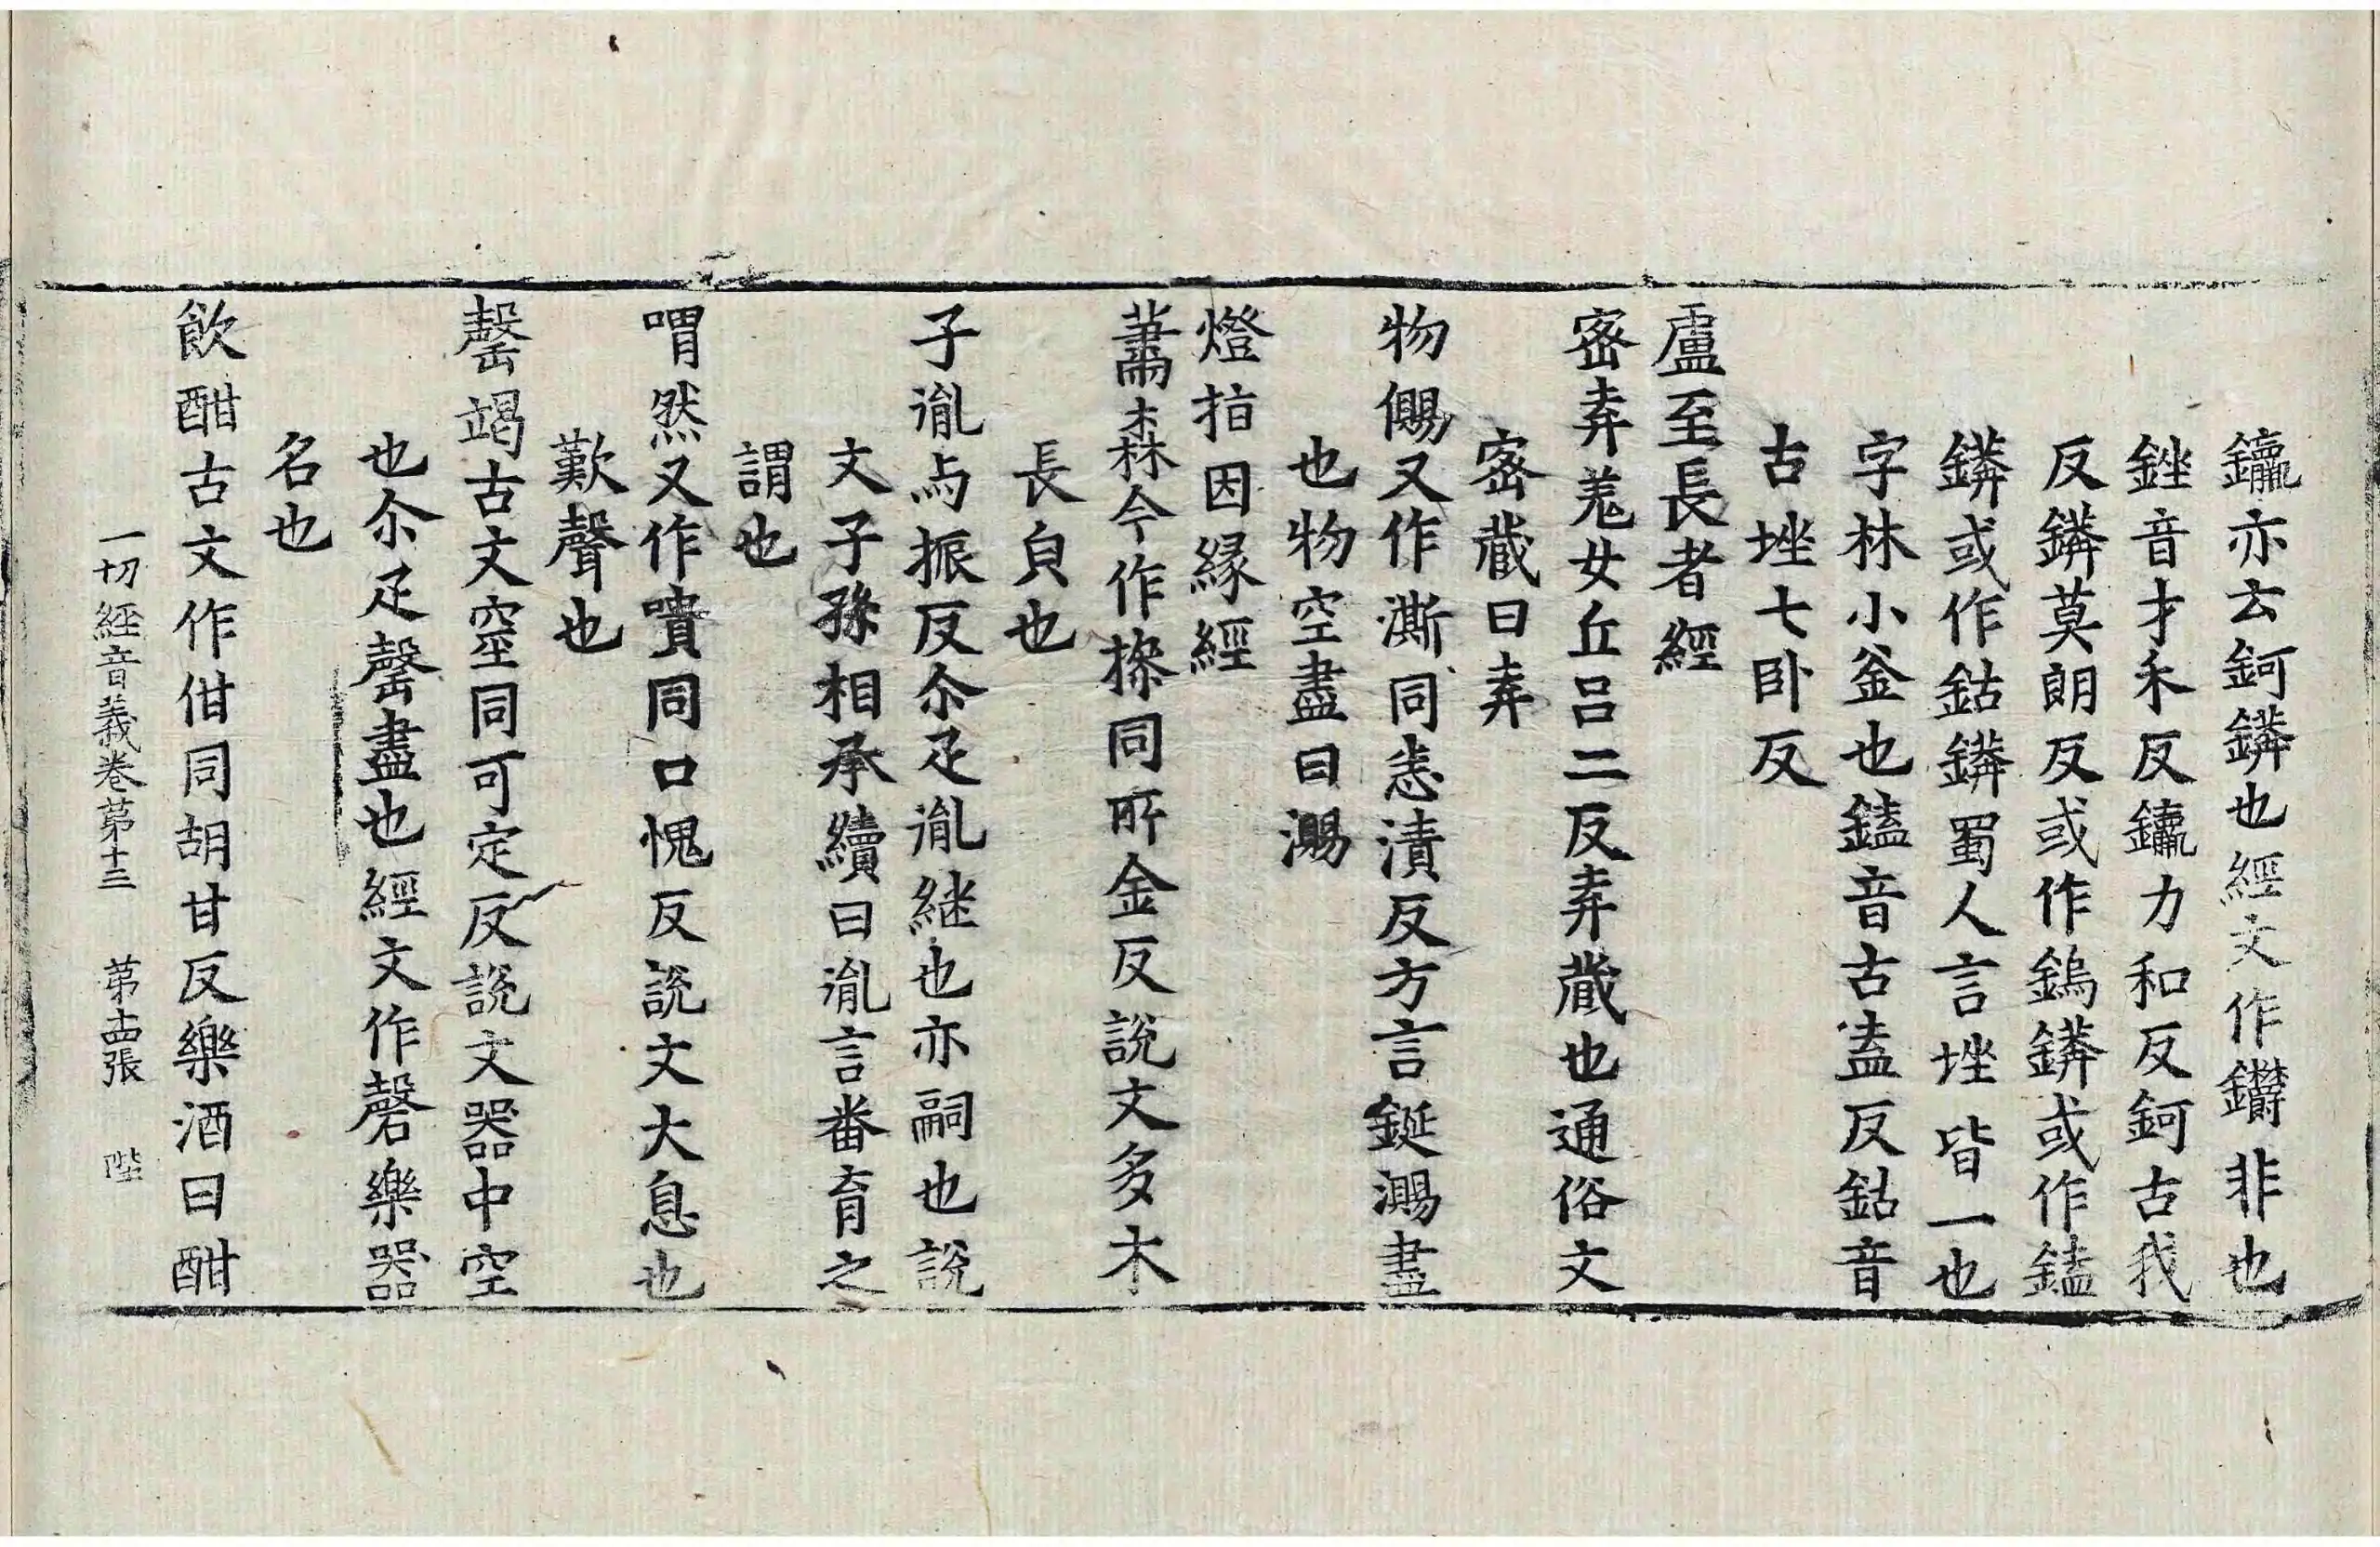 鑹亦云鈳鏻也經文作鑻非也
銼音才禾反鑹力和反鈳古我
反鏻莫朗反或作鎢鏻或作鎑
鏻或作鈷鏻蜀人言㘸皆一也
字林小釜也鎑音古盍反鈷音
古㘸七卧反
盧至長者經
宻弆羗女丘呂二反弆蔵也通俗文
宻蔵曰弆
物儩又作澌同恚漬反方言鋌㵣盡
也物空盡曰㵣
燈指因緣經
萧森今作槮同所金反說文多木
長皃也
子胤与振反尒疋胤継也亦嗣也說
文子孫相承續曰胤言番育之
謂也
喟然又作嘳同口愧反說文大息也
歎聲也
罄竭古文窒同可定反說文器中空
也尒疋罄盡也經文作磬樂器
名也
飲酣古文作佄同胡甘反樂酒曰酣
一切經音義卷苐十三 苐十四張 陛